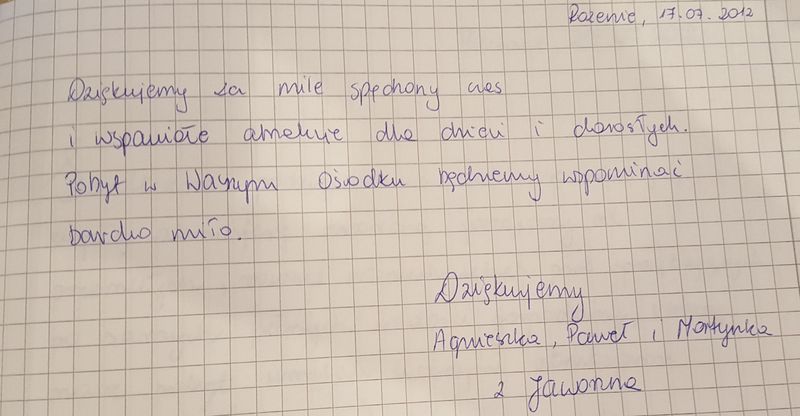 Rozenie, 17.07.2012
Dziękujemy za mile spędzony czas
i wspaniałe atrakcje dla dzieci i dorosłych.
Pobyt w Waszym Ośrodku będziemy wspominać
bardzo miło.
Dziękujemy
Agnieszka, Paweł i Martynka
z Jaworzna